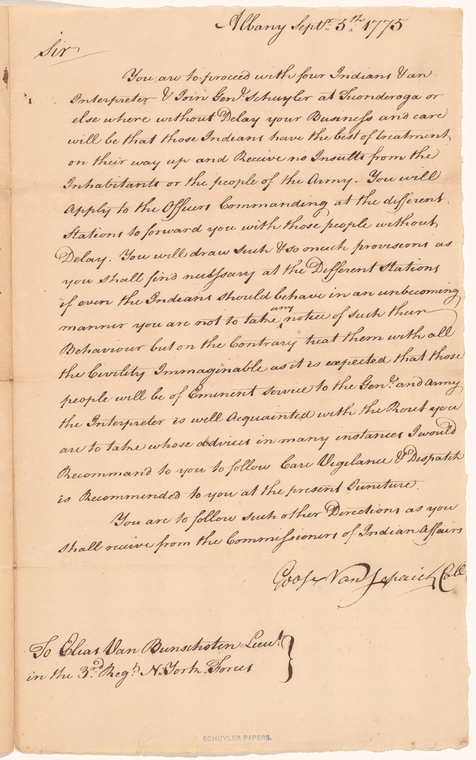 Albany Septr. 5th. 1775
Sir
You are to proceed with four Indians & an
Interpreter & Join Genl. Schuyler at Ticonderoga or
else where without Delay your Business and care
will be that those Indians have the best of treatment
on their way up and Receive no Insults from the
Inhabitants or the people of the Army. You will
Apply to the Officers Commanding at the different
Stations to forward you with those people without
Delay. You will draw such & so much provisions as
you shall find nessessary at the Different Stations
if even the Indians should behave in an unbecoming
manner you are not to take any notice of such their
Behaviour but on the Contrary treat them with all
the Civility Immaginable as it is expected that those
people will be of Eminent Service to the Genl. and Army
the Interpreter is well Acquainted with the Rout you
are to take whose advices in many instances I would
Recommand to you to follow Care Vigelance & Despatch
is Recommended to you at the present Juncture.
You are to follow such other Directions as you
shall recive from the Commissioners of Indian Affairs
Goose Van Schaick Coll
To Elias Van Bunschoten Lieut.
in the 3rd. Regt. N. York Forces
SCHUYLER PAPERS.